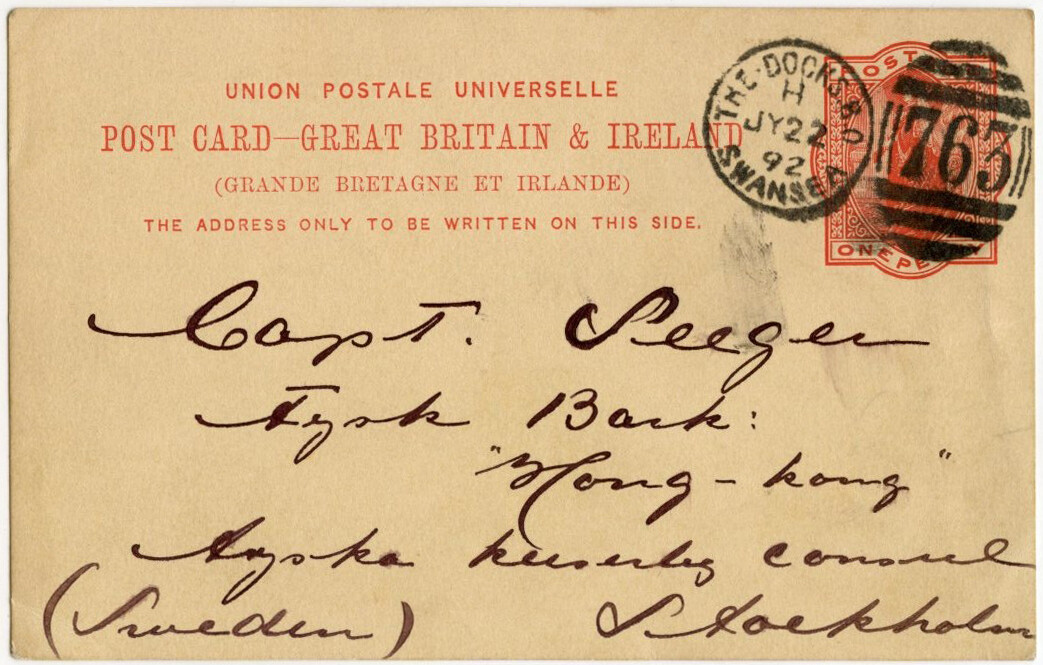 UNION POSTALE UNIVERSELLE
POST CARD—GREAT BRITAIN & IRELAND
(GRANDE BRETAGNE ET IRLANDE)
THE ADDRESS ONLY TO BE WRITTEN ON THIS SIDE.
THE·DOCKS S.O
H
JY 22
92
SWANSEA
763
POST
ONE PENNY
Capt. Seeger
Tysk Bark:
"Hong-kong"
Tyska consul
Stockholm
(Sweden)